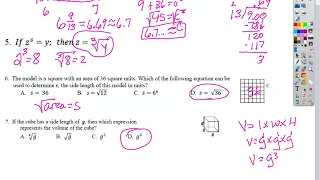 6 9/13 = 6.69 ≈ 6.7
9 + 36 = c²
√45 = √c²
6.7... = c
13/9.00
120
-117
3
5. If z³ = y; then z = ∛y
2³ = 8 ∛8 = 2
6. The model is a square with an area of 36 square units. Which of the following equation can be
used to determine s, the side length of this model in units?
A. s = 36 B. s = √12 C. s = 6⁶ D. s = √36
√area = s
7. If the cube has a side length of g, then which expression
represents the volume of the cube?
A. B. C. g² D. g³
V = l x w x H
V = g x g x g
V = g³